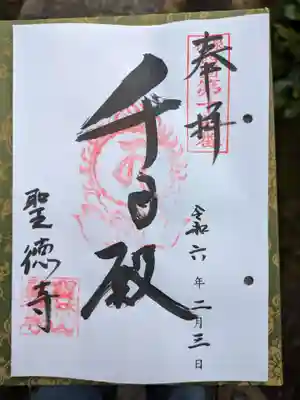 奉拝
千手殿
令和六年二月三日
聖徳寺